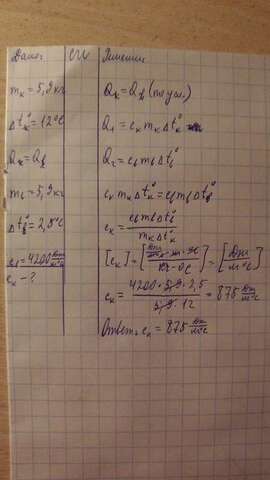 Дано:
m_к = 5,9 кг
Δt°_к = 12°C
Q_к = Q_в
m_в = 5,9 кг
Δt°_в = 2,5°C
c_в = 4200 Дж/кг°C
c_к - ?
СИ
Решение
Q_к = Q_в (по усл.)
Q_1 = c_к m_к Δt°_к
Q_2 = c_в m_в Δt°_в
c_к m_к Δt°_к = c_в m_в Δt°_в
c_к = c_в m_в Δt°_в / m_к Δt°_к
[c_к] = [Дж/кг°C · кг · °C / кг · °C] = [Дж/кг°C]
c_к = 4200 · 5,9 · 2,5 / 5,9 · 12 = 875 Дж/кг°C
Ответ: c_к = 875 Дж/кг°C